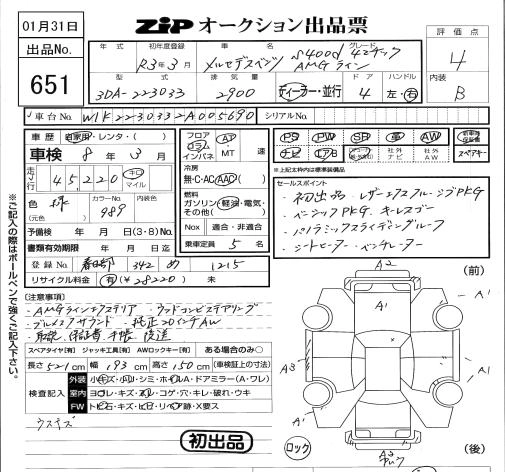 01月31日
ZIP オークション出品票
評価点
4
出品No.
651
年式 初年度登録 車名 グレード
R3年3月 メルセデスベンツ S400d 4マチック
AMGライン
型式 排気量 ドア ハンドル
3DA-223033 2900 ディーラー・並行 4 左・右
内装
B
車台No. W1K2230332A005690 シリアルNo.
車歴 自家用・レンタ・( )
車検 8年3月
走行 45,220 キロ マイル
色 (元色) カラーNo. 989 内装色
予備検 年 月 日(3・8)No.
書類有効期限 年 月 日迄
登録No. 春日部 342 め 1215
リサイクル料金 有(¥28220) 未
フロア コラム インパネ AT MT 速
冷房
無・C・AC・AAC( )
燃料
ガソリン・軽油・電気・その他( )
Nox 適合・非適合
乗車定員 5 名
PS PW SR 革 AW 新車時保証書
ナビ エアB 社外ナビ 社外AW スペアキー
※上記太枠内は標準装備品
セールスポイント
・初出品・レザーエクスクルーシブPKG
・ベーシックPKG・キーレスゴー
・パノラミックスライディングルーフ
・シートヒーター・ベンチレーター
注意事項
・AMGラインエクステリア・ウッドコンビステアリング
・ブルメスタサウンド・純正20インチAW
・取説・保証書・手帳後送
スペアタイヤ[有] ジャッキ工具[有] AWロックキー[有] ある場合のみ○
長さ521cm 幅193cm 高さ150cm (車検証上の寸法)
検査記入
外装
内装
FW トビ石・キズ・ヒビ・リペア跡・X要ス
ウスキズ
初出品
(前)
A2
A1
A1
A1
A3
A2
ロック
(後)
※ご記入の際はボールペンで強くご記入下さい。